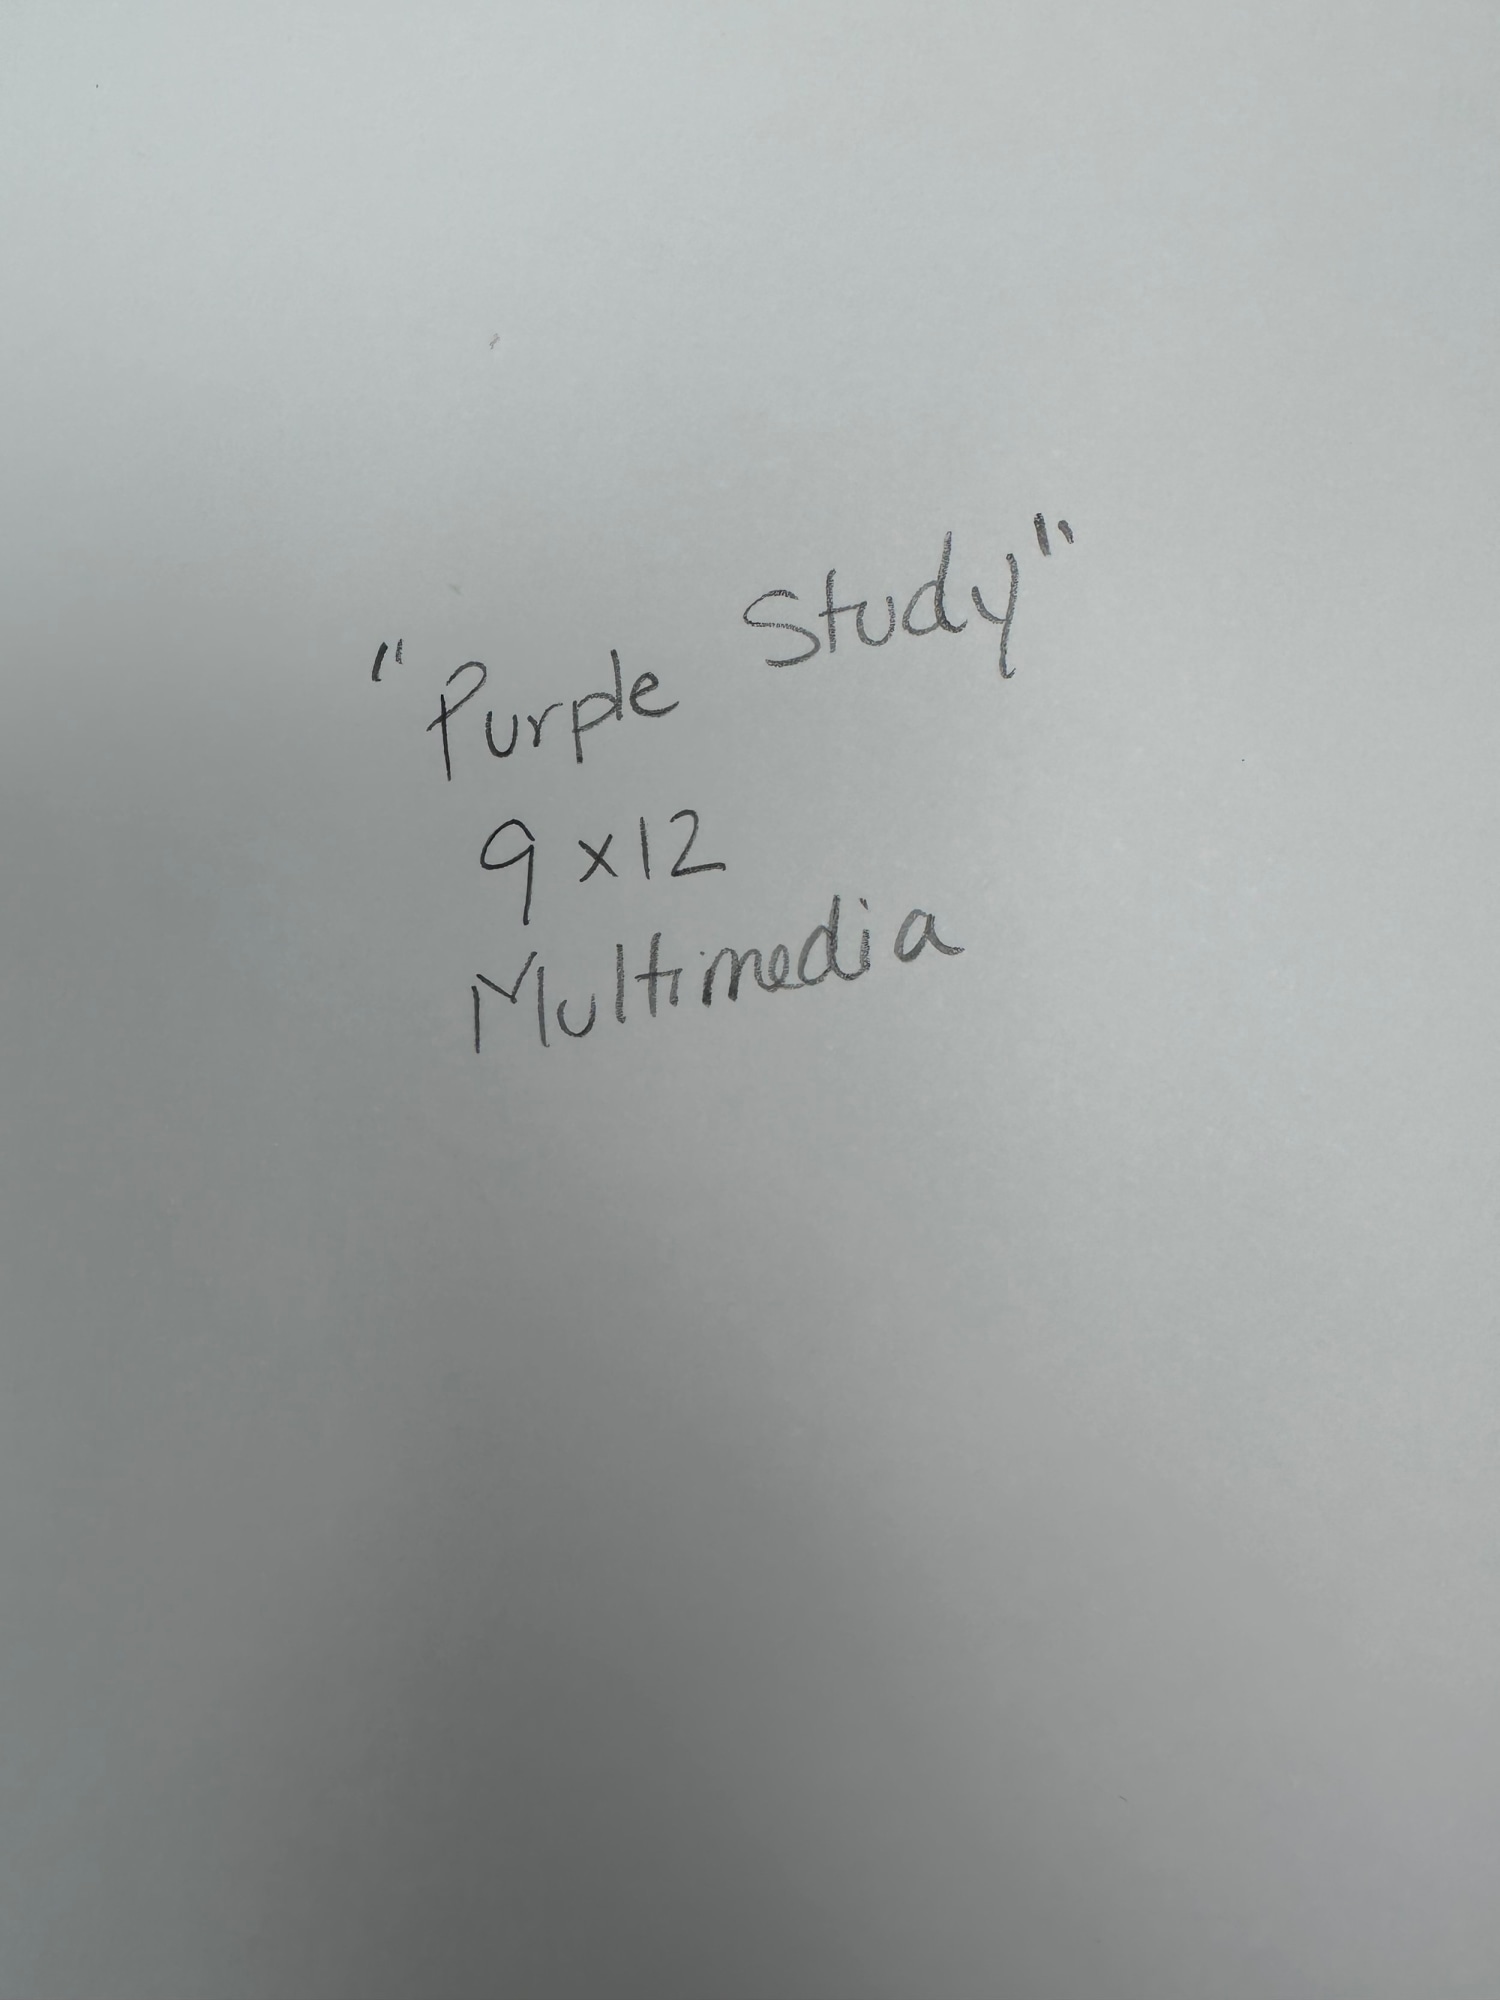 "Purple Study"
9 x 12
Multimedia